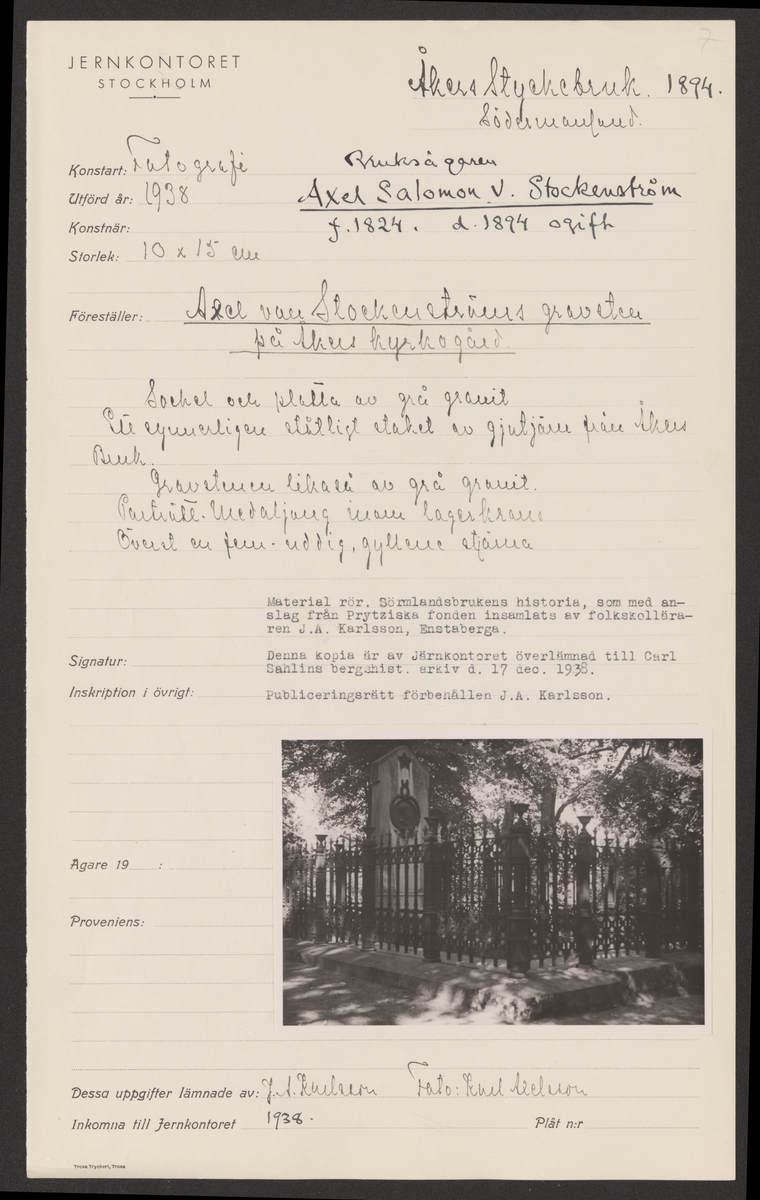 7
JERNKONTORET
STOCKHOLM
Åkers Styckebruk. 1894.
Södermanland.
Konstart: Fotografi
Bruksägaren
Utförd år: 1938
Axel Salomon v. Stockenström
Konstnär:
f. 1824. d. 1894 ogift
Storlek: 10 x 15 cm
Föreställer: Axel van Stockenströms gravsten
på Åkers kyrkogård.
Sockel och platta av grå granit
Ett synnerligen ståtligt staket av gjutjärn från Åkers
Bruk.
Gravstenen likaså av grå granit.
Porträtt-Medaljong inom lagerkrans
Överst en fem-uddig, gyllene stjärna
Material rör. Sörmlandsbrukens historia, som med an-
slag från Prytziska fonden insamlats av folkskollära-
ren J.A. Karlsson, Enstaberga.
Signatur:
Denna kopia är av Järnkontoret överlämnad till Carl
Sahlins bergshist. arkiv d. 17 dec. 1938.
Inskription i övrigt:
Publiceringsrätt förbehållen J.A. Karlsson.
Ägare 19 :
Proveniens:
Dessa uppgifter lämnade av: J.A. Karlsson Foto: Karl Axelsson
Inkomna till Jernkontoret 1938.
Plåt n:r
Trosa Tryckeri, Trosa